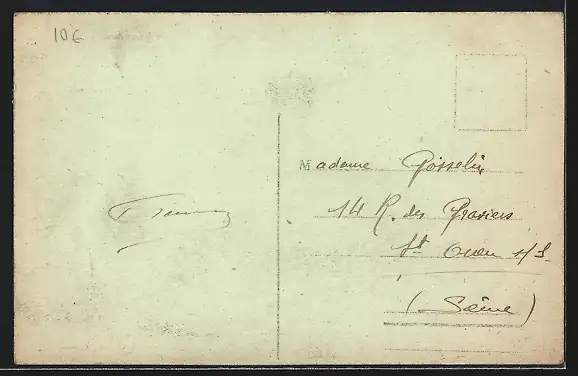 10€
Madame Gosselin
14 R. des Graviers
St Ouen s/S
(Seine)